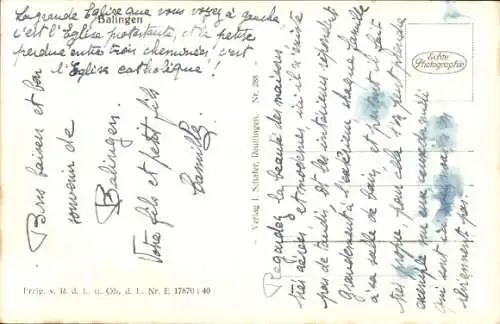 Balingen
La grande Eglise que vous voyez à gauche
c'est l'Eglise protestante, et la petite
perdue entre trois cheminées, c'est
l'Eglise catholique!
Bons baisers et bon
souvenir de
Balingen.
Votre fils et petit fils
Camille
Freig. v. R. d. L. u. Ob. d. L. Nr. E 17870 / 40
Verlag I. Schäfer, Reutlingen. Nr. 288
Echte
Photographie
Regardez la beauté des maisons
très aérées et modernes, ici il n'existe
pas de taudis, et les instances répondent
grandement à l'extérieur chaque famille
a sa salle de bain, et partout il fait
très propre pour cela on peut prendre
exemple sur eux
qui sont
sûrement pas.